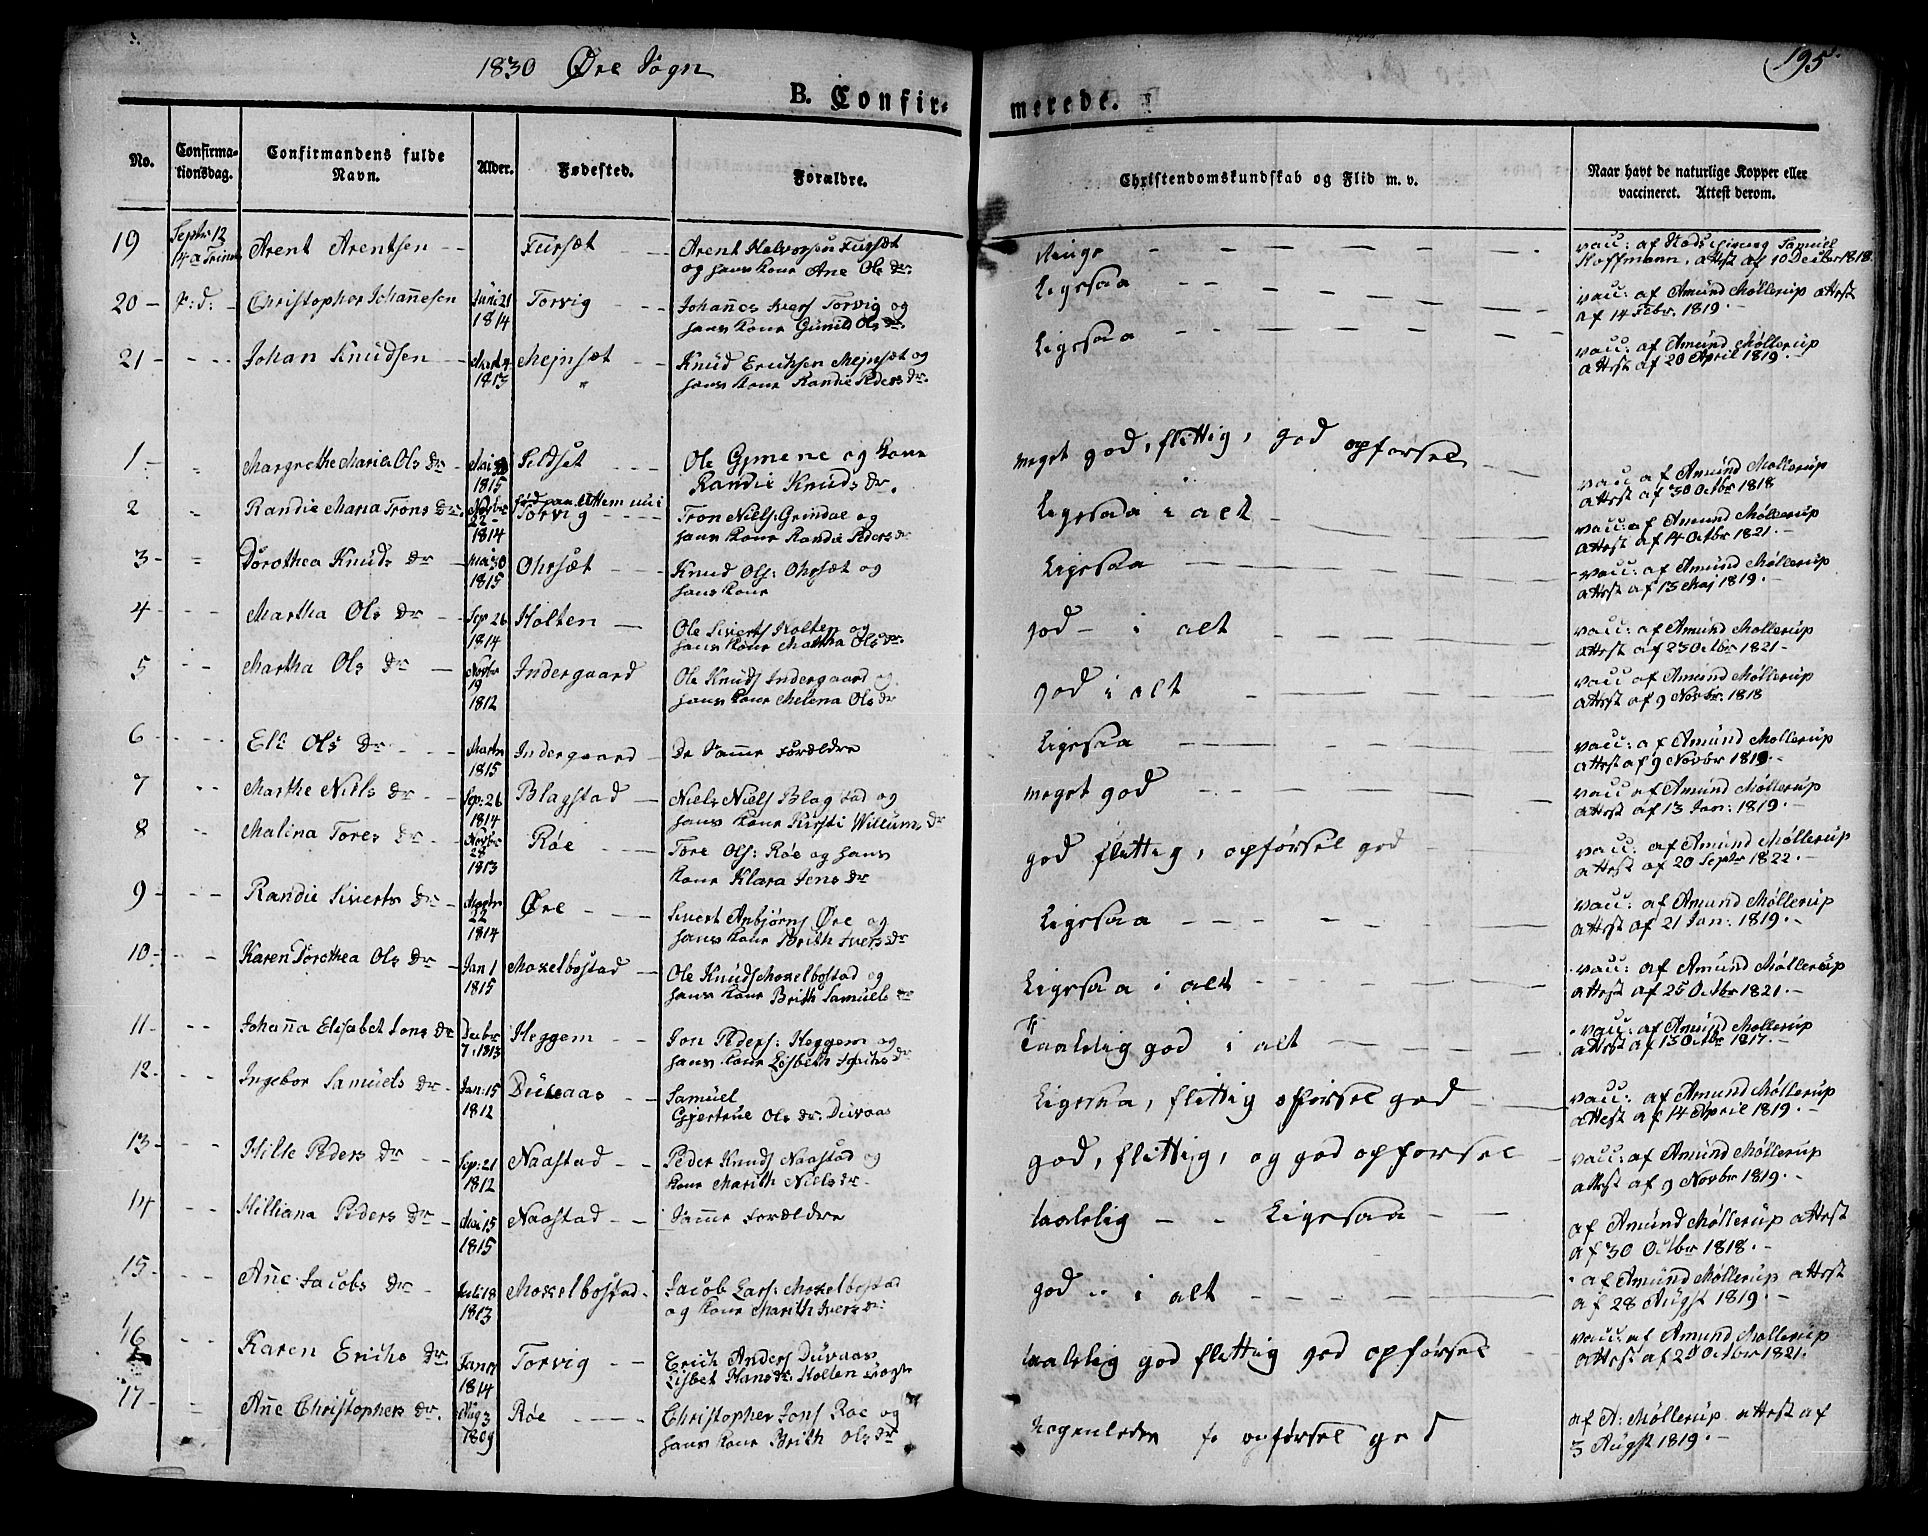 1830 Øre Sogn
195.
B. Confirmerede.
No. Confirmationsdag. Confirmandens fulde Navn. Alder. Fødested. Forældre. Christendomskundskab og Flid m. v. Naar havt de naturlige Kopper eller vaccineret. Attest derom.
19 Septr. 12 Arent Arentsen -- Fursæt Arent Halvorsen Fursæt
og hans kone Ane Ols dr.
vacc: af Samuel
Hoffmann, attest af 10 Decbr 1818.
20 - Christopher Johannesen Juni 21 1814 Torvig - Johannes Ivers Torvig og
hans kone Gunild Ols dr. Ligesaa vacc: af Amund Møllerup attest
af 14 Febr. 1819. -
21 - Johan Knudsen 1813 Mejnsæt Knud Erichsen Mejnsæt og
hans kone Randie Peders dr. Ligesaa vacc: af Amund Møllerup
attest af 20 April 1819. -
1. - Margrethe Maria Ols dr - Mai 1815 Sildset Ole Gjmene og kone
Randie Knuds dr. meget god, flittig, god opførsel vacc af Amund Møllerup
attest af 30 Octbr 1818
2 Randie Maria Trons dr. Novbr 22 1814 Torvig Tron Niels. Grindal og
hans kone Randie Peders dr Ligesaa i alt vacc: af Amund Møllerup
attest af 14 Octbr 1821. -
3 - Dorothea Knuds dr 1815 Ohrsæt Knud Ols: Ohrsæt og
hans kone Ligesaa vacc: af Amund Møllerup
attest af 13 Maj 1819. -
4 Martha Ols dr Sep 26 1814 Holten Ole Siverts Holten og
hans kone Martha Ols dr. god - i alt vacc: af Amund Møllerup
attest af 23 Octbr 1821 -
5 Martha Ols dr Novbr 19 1812 Indergaard Ole Knuds Indergaard og
hans kone Melena Ols dr god i alt vacc af Amund Møllerup
attest af 9 Novbr. 1818
6 Eli Ols dr Marts 1815 Indergaard De Samme Forældre Ligesaa vacc: af Amund Møllerup
attest af 9 Novbr 1819. -
7 Marthe Niels dr Sep: 26 1814 Blagstad Niels Niels Blagstad og
hans kone Kirsti Willums dr meget god vacc af Amund Møllerup
attest af 13 Jan: 1819. -
8 Malina Tores dr Novbr 28 1813 Røe Tore Ols: Røe og hans
kone Klara Jens dr god flittig, opførsel god vacc: af Amund Møllerup
attest af 20 Septr 1822. -
9 Randie Siverts dr Marts 22 1814 Øre Sivert Anbjørns Øre og
hans kone Brith Ivers dr Ligesaa vacc: af Amund Møllerup
attest af 21 Jan: 1819. -
10 Karen Dorothea Ols dr Jan 1 1815 Moxelbostad Ole Knuds Moxelbostad og
hans kone Brith Samuels dr Ligesaa i alt vacc: af Amund Møllerup
attest af 25 Octbr 1821. -
11 - Johanna Elisabet Jons dr Decbr 7. 1813 Heggem Jon Peders: Heggem og
hans kone Lisbeth dr Taalelig god i alt vacc: af Amund Møllerup
attest af 13 Octbr 1817. -
12 Ingebor Samuels dr Jan: 15 1812 Duvaas Samuel
Gjertrue Ols dr: Duvaas Ligesaa, flittig opførsel god vacc: af Amund Møllerup
attest af 14 April 1819. -
13 - Hille Peders dr Sep: 21 1812 Naastad Peder Knuds Naastad og
kone Marith Niels dr god, flittig, og god opførsel vacc: af Amund Møllerup
attest af 9 Novbr 1819. -
14 Hilliana Peders dr Mai 15 1815 Naastad Samme Forældre taalelig - - Ligesaa af Amund Møllerup attest
af 30 Octbr 1818. -
15 Ane Jacobs dr Juli 18 1813 Moxelbostad Jacob Lars: Moxelbostad
og kone Marith Ivers dr: god i alt af Amund Møllerup attest
af 28 Augst 1819. -
16 Karen Erichs dr Jan 1814 Torvig Erich Anders Duvaas
Lisbet Hans dr: Holten taalelig god flittig god opførsel vacc: af Amund Møllerup
attest af Octbr 1821.
17 Ane Christophers dr. Aug 3 1809 Røe Christopher Jons Røe og
hans kone Brith Ols dr nogenledes opførsel god af A: Møllerup attest af
3 Augst 1819. -